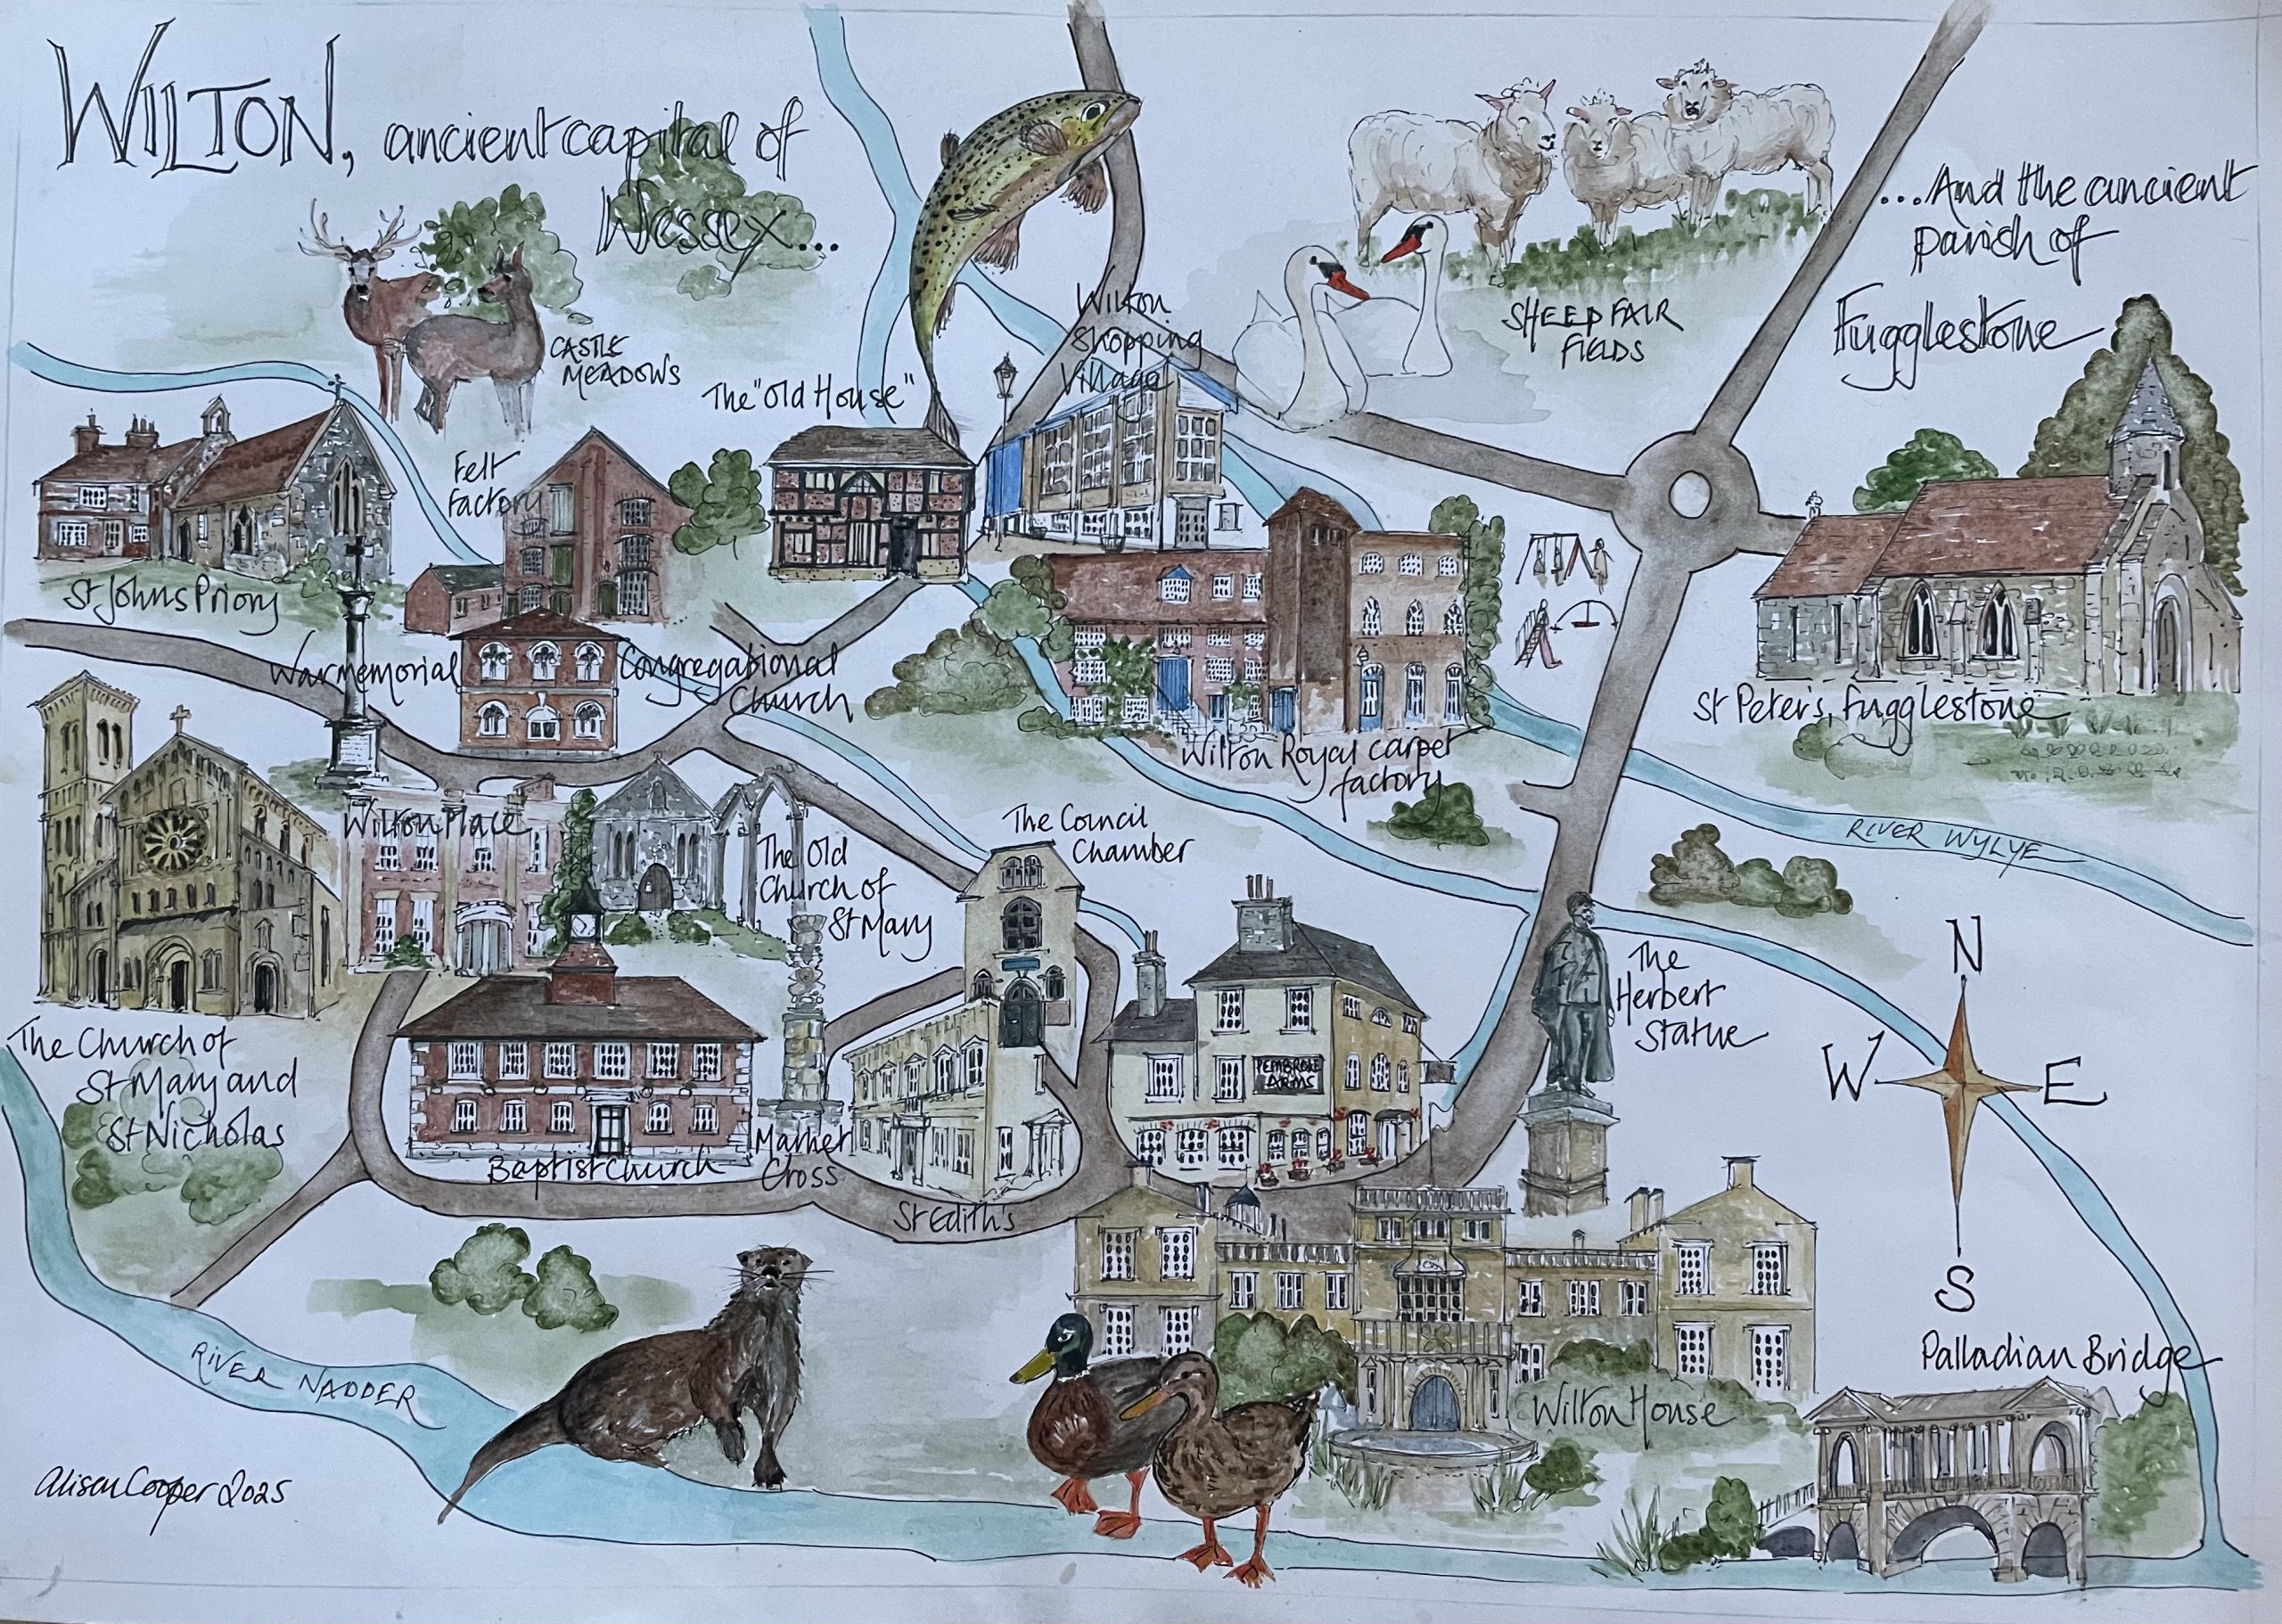 WILTON, ancient capital of
Wessex...
...And the ancient
parish of
Fugglestone
CASTLE
MEADOWS
The "Old House"
Wilton
Shopping
Village
SHEEP FAIR
FIELDS
Felt
Factory
St Johns Priory
War memorial
Congregational
Church
Wilton Royal carpet
factory
St Peter's, Fugglestone
RIVER WYLYE
Wilton Place
The Old
Church of
St Mary
The Council
Chamber
The
Herbert
Statue
The Church of
St Mary and
St Nicholas
Baptist Church
Market
Cross
St Edith's
PEMBROKE
ARMS
N
W
E
S
RIVER NADDER
Wilton House
Palladian Bridge
Alison Cooper 2025